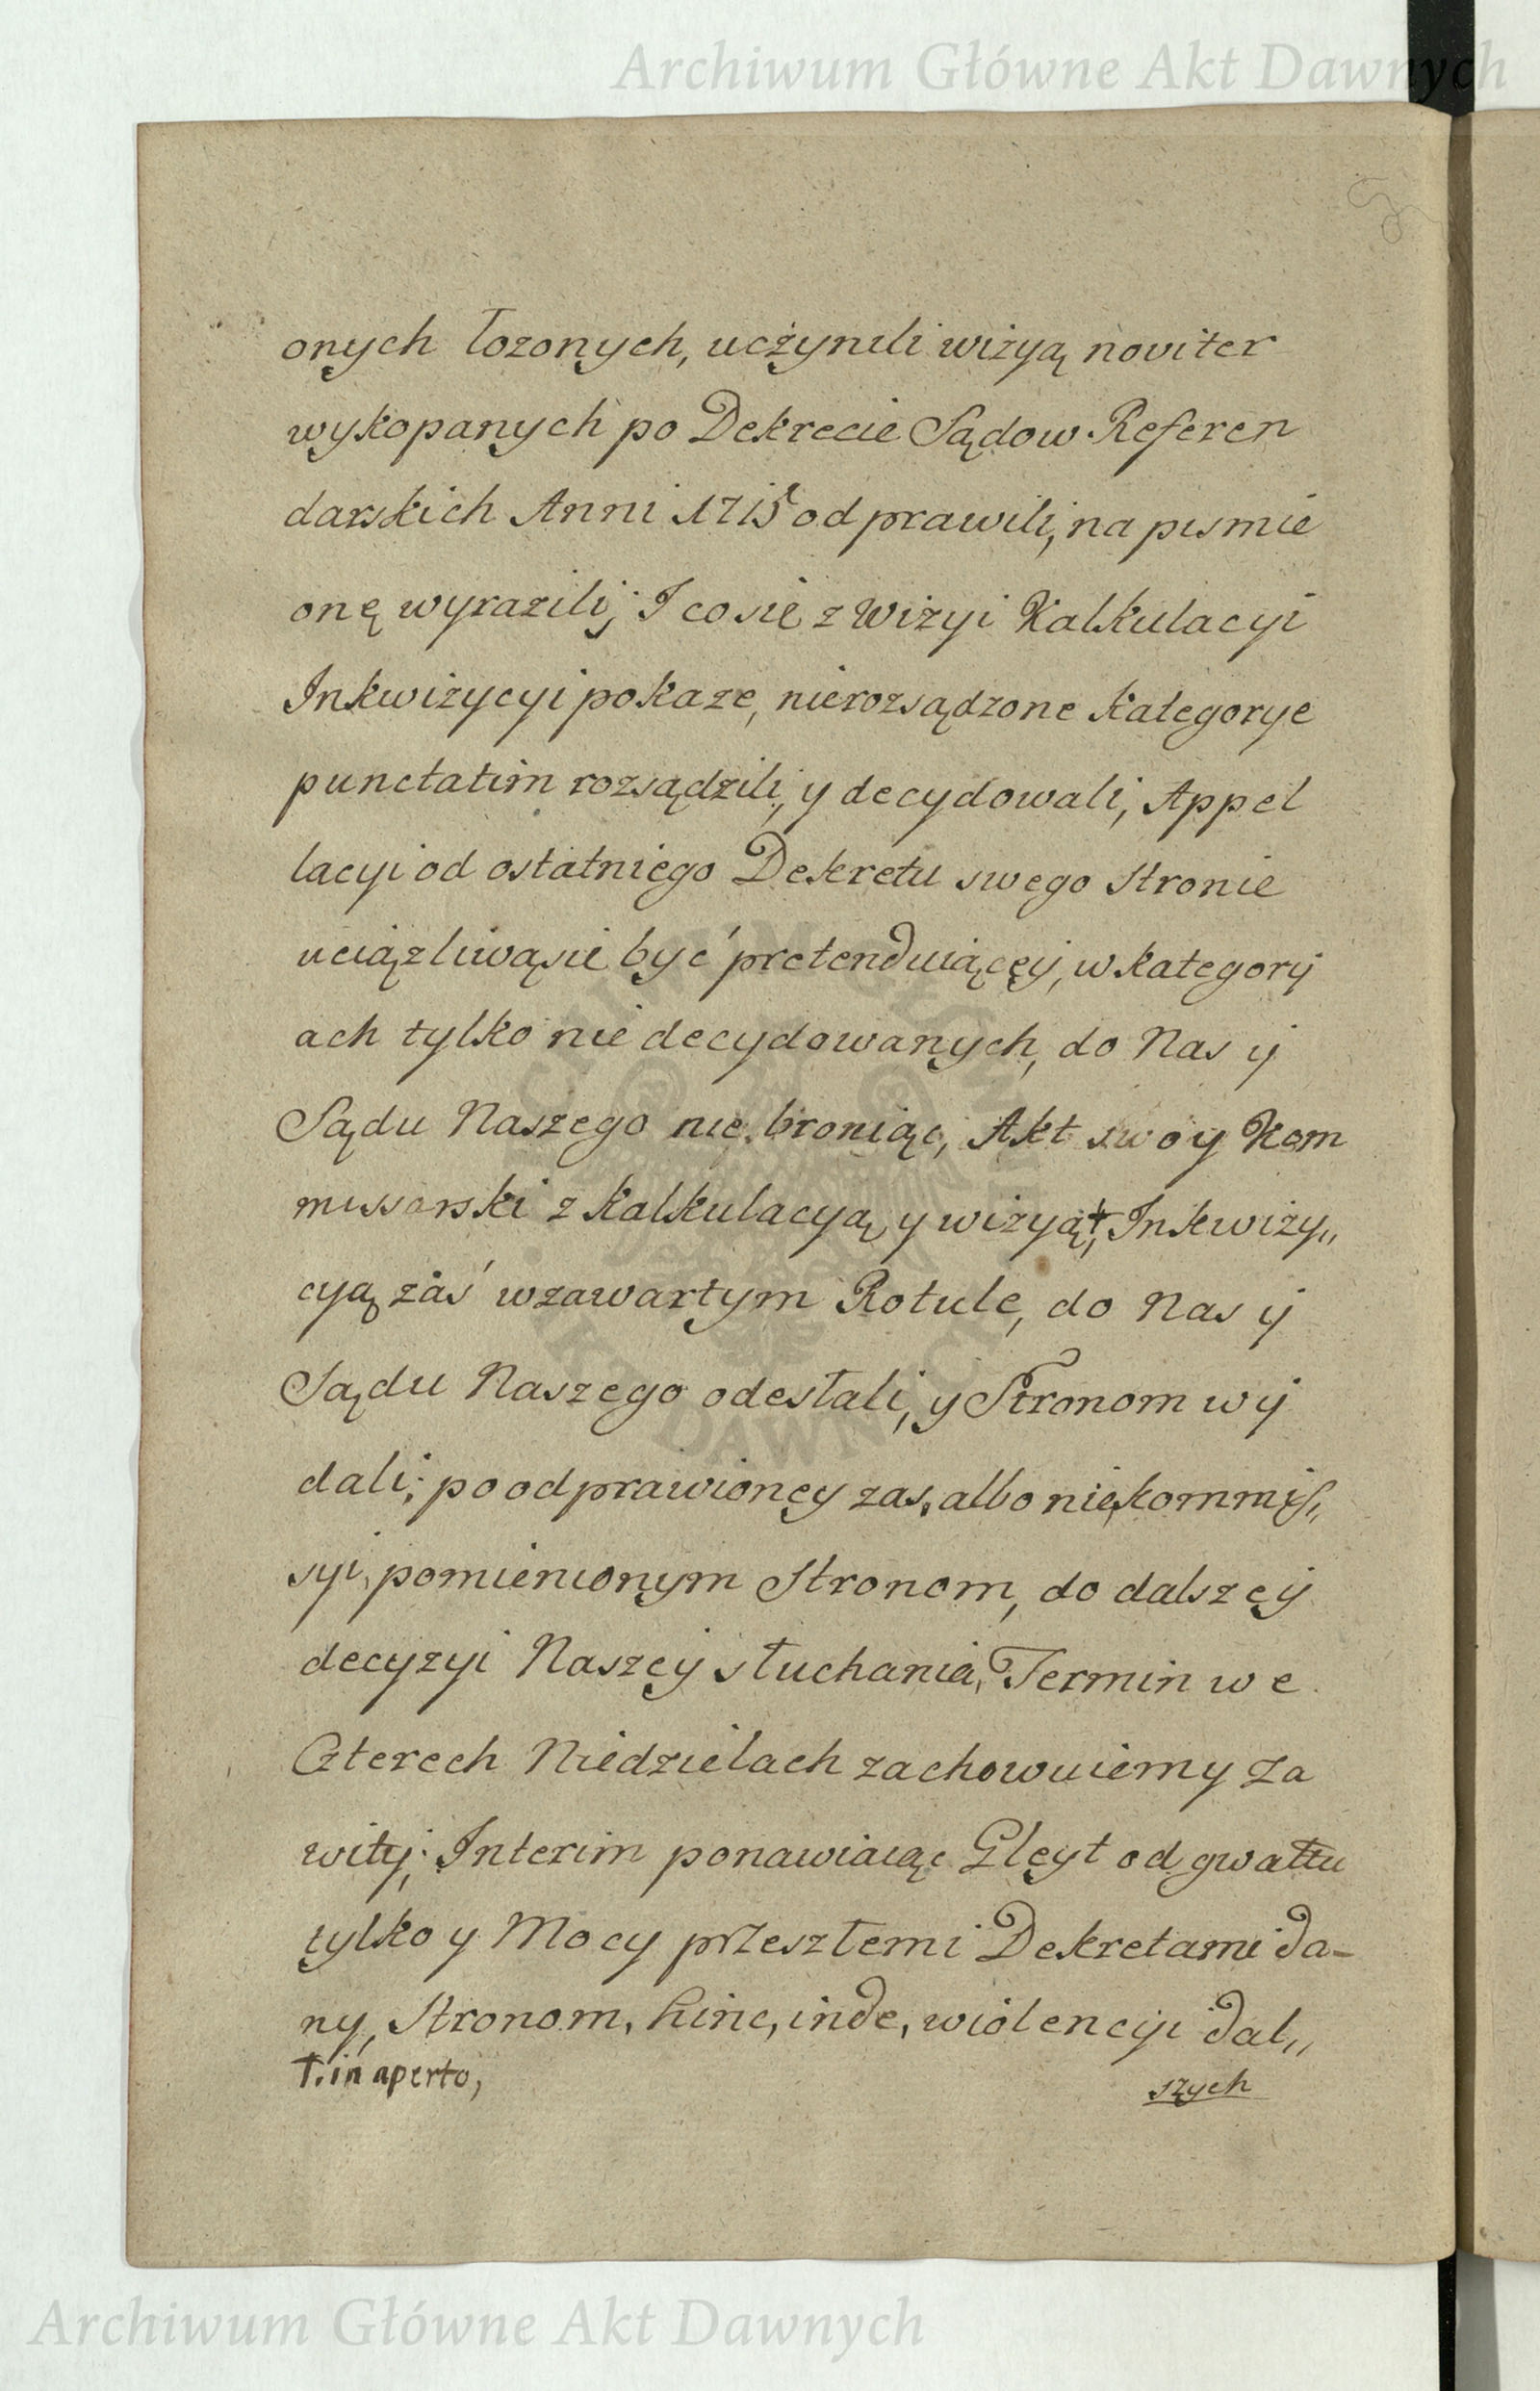 Archiwum Główne Akt Dawnych
onych łozonych, uczynili wizyą noviter
wykopanych po Dekrecie Sądow Referen
darskich Anni 1715 odprawili, na pismie
onę wyrazili; I co się z Wizyi Kalkulacyi
Inkwizycyi pokaze, nierozsądzone kategorye
punctatim rozsądzili, y decydowali, Appel
lacyi od ostatniego Dekretu swego stronie
uciązliwą się być pretenduiącęy, w kategory
ach tylko nie decydowanych, do Nas y
Sądu Naszego nie broniąc, Akt swoy Kom
missarski z kalkulacyą y wizyą †, Inkwizy„
cyą zaś w zawartym Rotule, do Nas y
Sądu Naszego odesłali, y Stronom wy
dali; po odprawionęy zas, albo nie kommis„
syi, pomienionym Stronom, do dalszęy
decyzyi Naszęy słuchania, Termin we
Czterech Niedzielach zachowuiemy za
wity; Interim ponawiaiąc Glęyt od gwałtu
tylko y Mocy przeszłemi Dekretami da-
ny, Stronom, hinc, inde, wiolencyi dal„
†. in aperto,
szych
Archiwum Główne Akt Dawnych